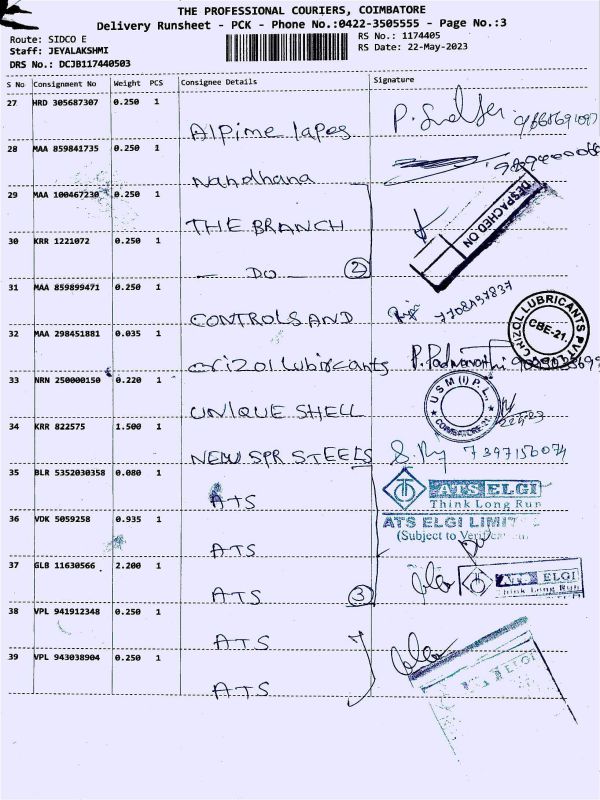 THE PROFESSIONAL COURIERS, COIMBATORE
Delivery Runsheet - PCK - Phone No.:0422-3505555 - Page No.:3
Route: SIDCO E
RS No.: 1174405
Staff: JEYALAKSHMI
RS Date: 22-May-2023
DRS No.: DCJB117440503
S No Consignment No Weight PCS Consignee Details Signature
27 HRD 305687307 0.250 1
Alpime Tapes
28 MAA 859841735 0.250 1
Nandhana
29 MAA 100467230 0.250 1
THE BRANCH
DESPACHED ON
30 KRR 1221072 0.250 1
- DO - 2
31 MAA 859899471 0.250 1
CONTROLS AND 7708137837
CHIZOL LUBRICANTS PVT
CBE-21.
32 MAA 298451881 0.035 1
Crizol Lubircants P. Padmavathi
33 NRN 250000150 0.220 1
UNIQUE SHELL
USM (I) P.L.,
COIMBATORE-21.
34 KRR 822575 1.500 1
NEW SPR STEELS 7397156074
35 BLR 5352030358 0.080 1
ATS
ATS ELGI
Think Long Run
36 VDK 5059258 0.935 1
ATS ELGI LIMIT
(Subject to Verification
ATS
37 GLB 11630566 2.200 1
ATS 3
ATS ELGI
Think Long Run
38 VPL 941912348 0.250 1
ATS
39 VPL 943038904 0.250 1
ATS
ATS ELGI